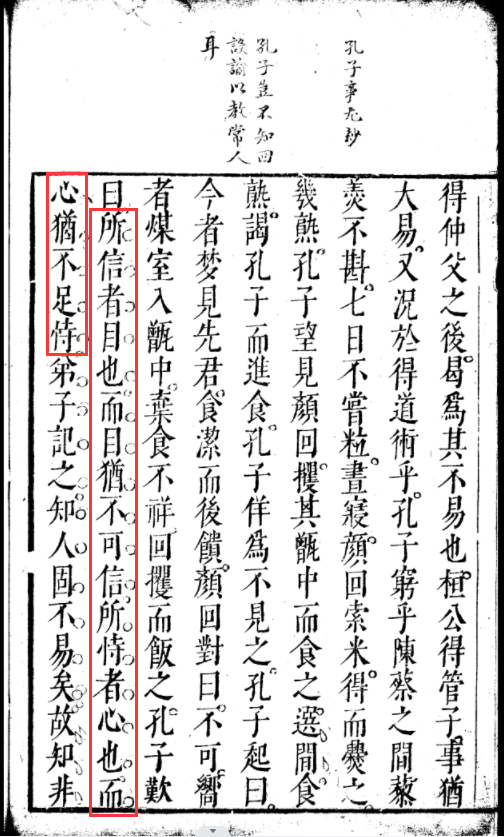 孔子事尤妙
孔子豈不知回
設諭以教常人
耳
得仲父之後曷爲其不易也桓公得管子事猶
大易又況於得道術乎孔子窮乎陳蔡之間藜
羹不斟七日不嘗粒晝寢顏回索米得而爨之
幾熟孔子望見顏回攫其甑中而食之選間食
熟謁孔子而進食孔子佯爲不見之孔子起曰
今者夢見先君食潔而後饋顏回對曰不可嚮
者煤室入甑中棄食不祥回攫而飯之孔子歎
曰所信者目也而目猶不可信所恃者心也而
心猶不足恃弟子記之知人固不易矣故知非